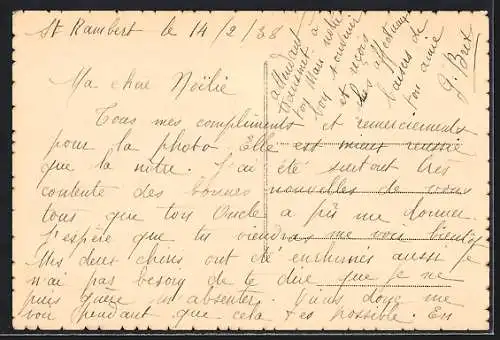 St Rambert le 14/2/38
Ma chère Noëlie
Tous mes compliments et remerciements
pour la photo. Elle est mieux réussie
que la nôtre. J'ai été surtout très
contente des bonnes nouvelles de vous
tous que ton Oncle a pu me donner.
J'espère que tu viendras me voir bientôt
Mes deux chéris ont été enrhumés aussi je
n'ai pas besoin de te dire que je ne
puis guère m'absenter. Viens donc me
voir pendant que cela t'es possible. En
attendant
transmet à
ton Mari notre
bon souvenir
et reçois
les affectueux
baisers de
ton amie
G. Bret